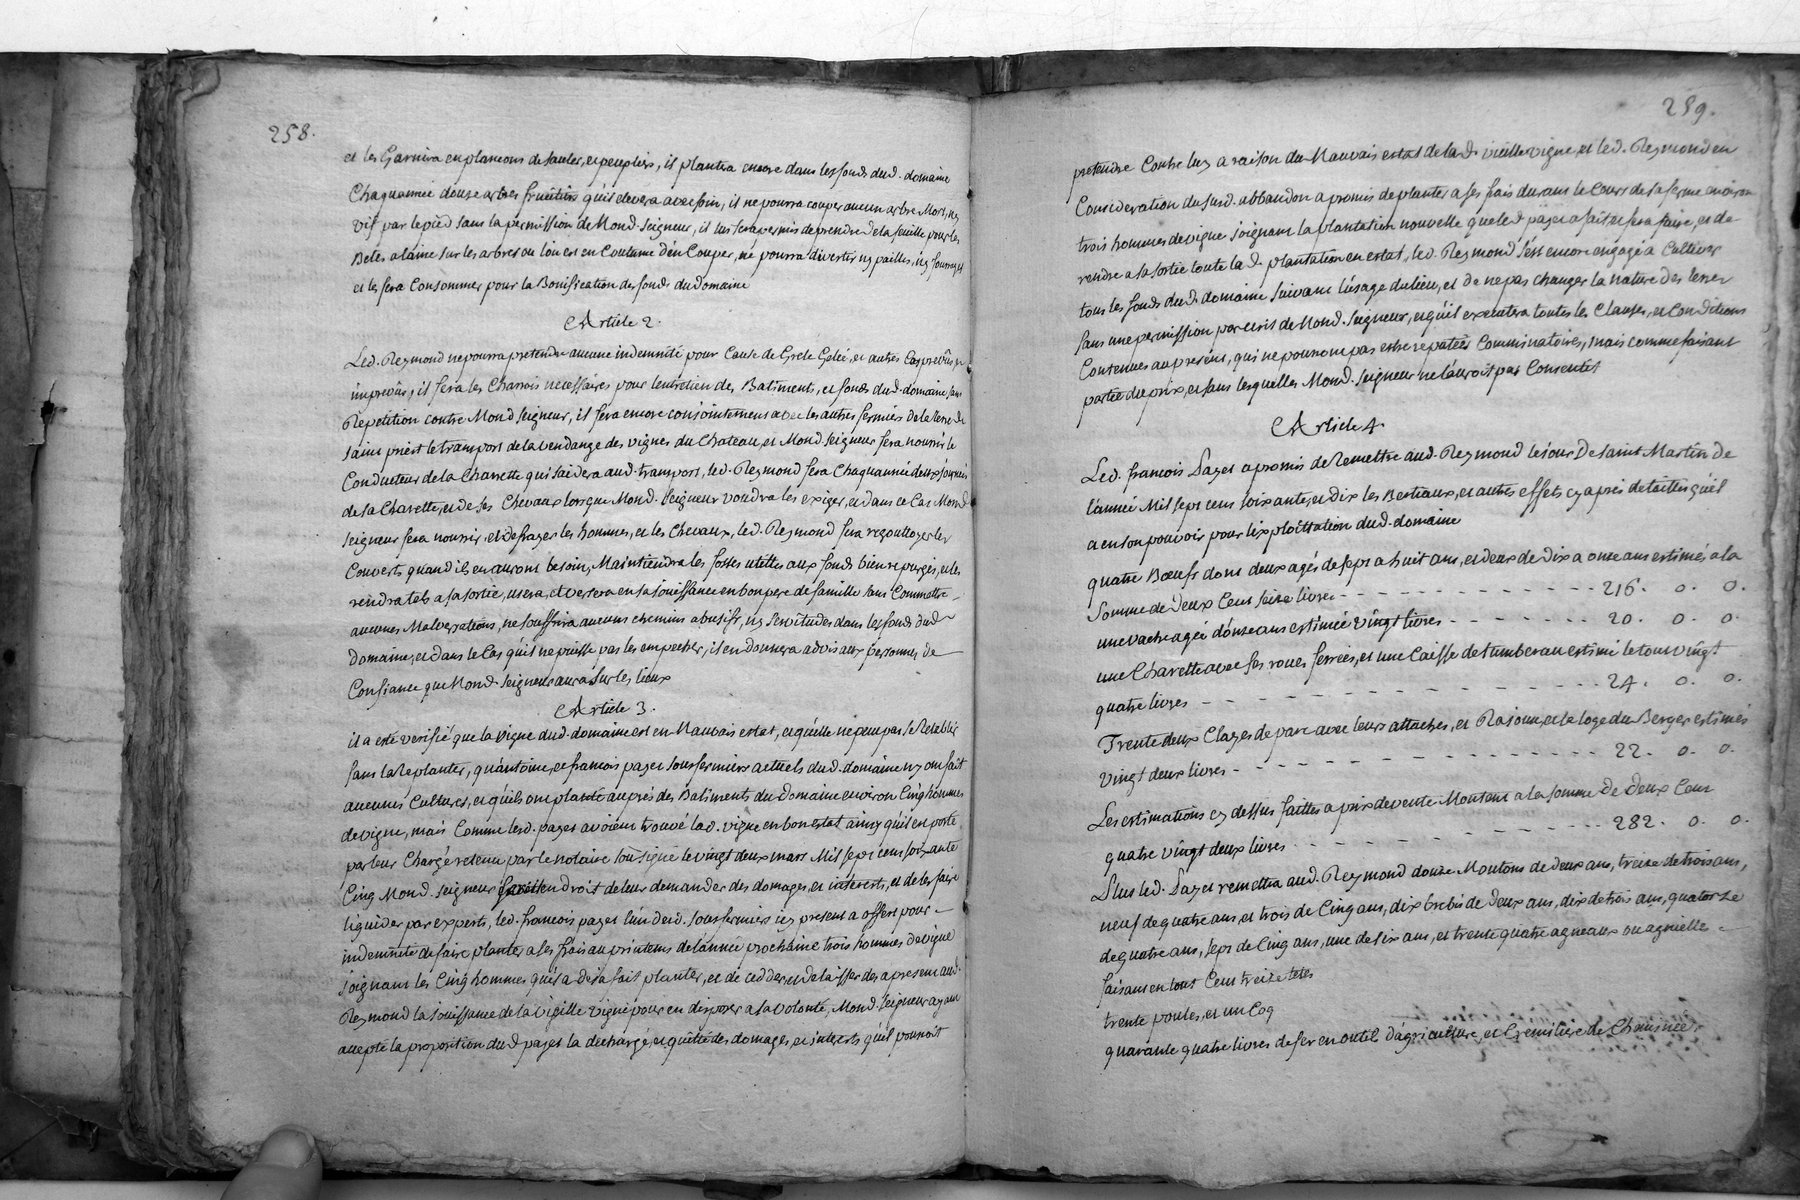 258.
et les Garnira en plancons de saules, et peupliers, il plantera encore dans les fonds dud. domaine
Chaqu'année douze arbres fruitiers qu'il elevera avec soin, il ne pourra couper aucun arbre Mort, ny
vif par le pied sans la permission de Mond. Seigneur, il lui sera permis de prendre de la feuille pour les
Betes a laine sur les arbres ou lon est en Coutume d'en Couper, ne pourra divertir ny pailles, ny fourrages
et les fera Consommer pour la Bonification des fonds du domaine
Article 2.
Led. Reymond ne pourra pretendre aucune indemnité pour Cause de Grele Gelée, et autres Cas prevûs, ou
imprevûs, il fera les Charrois necessaires pour l'entretien des Batiments, et fonds dud. domaine, sans
Repetition contre Mond Seigneur, il fera encore conjointement avec les autres fermiers de la terre de
Saint priest le transport de la vendange des vignes du Chateau, et Mond. Seigneur fera nourrir le
Conducteur de la Charrette qui s'aidera aud. transport, led. Reymond fera Chaqu'année deux journées
de sa Charette, et de ses Chevaux lorsque Mond. Seigneur voudra les exiger, et dans ce Cas Mond.
Seigneur fera nourrir, et defrayer les hommes, et les Chevaux, led. Reymond fera regouttoyer les
Couverts quand ils en auront besoin, Maintiendra les fosses utilles aux fonds bien repurgés, et les
rendra tels a sa sortie, usera, et versera en sa jouissance en bon pere de famille sans Commettre
aucunes Malversations, ne souffrira aucuns chemins abusifs, ny Servitudes dans les fonds dud.
Domaine, et dans le Cas qu'il ne puisse pas les empecher, il en donnera advis aux personnes de
Confiance que Mond. Seigneur aura sur les lieux
Article 3.
il a esté verifié que la vigne dud. domaine est en Mauvais estat, et qu'elle ne peut pas se Retablir
sans la Replanter, qu'antoine, et francois pages sousfermiers actuels dud. domaine n'y ont fait
aucunes Cultures, et qu'ils ont planté auprés des Batiments du Domaine environ Cinq hommes
de vigne, mais Comme lesd. pages avoient trouvé lad. vigne en bon estat ainsy qu'il en porte
par leur Chargé retenu par le notaire soussigné le vingt deux mars Mil sept cens soixante
Cinq Mond. Seigneur en droit de leur demander des domages, et interests, et de les faire
liquider par experts, led. francois pages l'un desd. sousfermiers icy present a offert pour
indemnité de faire planter a ses frais au printems de l'année prochaine trois hommes de vigne
joignant les Cinq hommes qu'il a deja fait planter, et de cedder, et delaisser des apresent aud.
Reymond la jouissance de la vieille vigne pour en disposer a sa volonté, Mond. Seigneur ayant
accepté la proposition dud. pages la decharge, et quitte des domages, et interests qu'il pourroit
259.
pretendre Contre luy a raison du Mauvais estat de lad. vieille vigne, et led. Reymond en
Consideration dususd. abbandon a promis de planter a ses frais durant le Cours de sa ferme environ
trois hommes de vigne joignant la plantation nouvelle que led. pages a fait et fera faire, et de
rendre a sa sortie toute lad. plantation en estat, led. Reymond s'est encore engagé a Cultiver
tous les fonds dud. domaine suivant l'usage du lieu, et de ne pas changer la nature des terres
sans une permission par ecrit de Mond. Seigneur, et qu'il executera toutes les Clauses, et Conditions
Contenues au present, qui ne pourront pas estre reputées Comminatoires, mais comme faisant
partie du prix, et sans lesquelles Mond. Seigneur ne l'auroit pas Consenti
Article 4.
Led. francois Pages a promis de Remettre aud. Reymond le jour De Saint Martin de
l'année Mil sept cens soixante, et dix les Bestiaux, et autres effets cy aprés detaillés qu'il
a en son pouvoir pour l'exploittation dud. domaine
quatre Bœufs dont deux agés de sept a huit ans, et deux de dix a onze ans estimés a la
Somme de Deux Cent seize livres - - - - - - - - - - - - 216. o o.
une vache agée d'onze ans estimée vingt livres - - - - - - - 20. o. o.
une Charette avec ses roues ferrées, et une Caisse de tumberau estimé le tout vingt
quatre livres - - - - - - - - - - - - - - 24. o. o.
Trente deux Clayes de parc avec leurs attaches, et la loge du Berger estimés
vingt deux livres - - - - - - - - - - - - - - 22. o. o.
Les estimations cy dessus faittes a prix de vente Montent a la somme De Deux Cent
quatre vingt deux livres - - - - - - - - - - - - 282. o. o.
Plus led. Pages remettra aud. Reymond douze Moutons de deux ans, treize de trois ans,
neuf de quatre ans, et trois de Cinq ans, dix brebis de Deux ans, dix de trois ans, quatorze
de quatre ans, sept de Cinq ans, une de six ans, et trente quatre agneaux ou agnielle
faisant en tout Cent treize tetes
trente poules, et un Coq
quarante quatre livres de fer en outil d'agriculture, et Cremiliere de Cheminée,